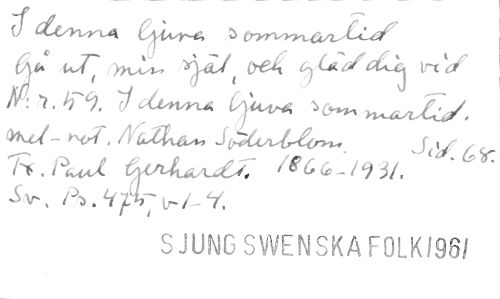 I denna ljuva sommartid
Gå ut, min själ, och gläd dig vid
N:r. 59. I denna ljuva sommartid.
mel-not. Nathan Söderblom. Sid. 68.
Tx. Paul Gerhardt. 1866-1931.
Sv. Ps. 475, v 1-4.
SJUNG SWENSKA FOLK 1961